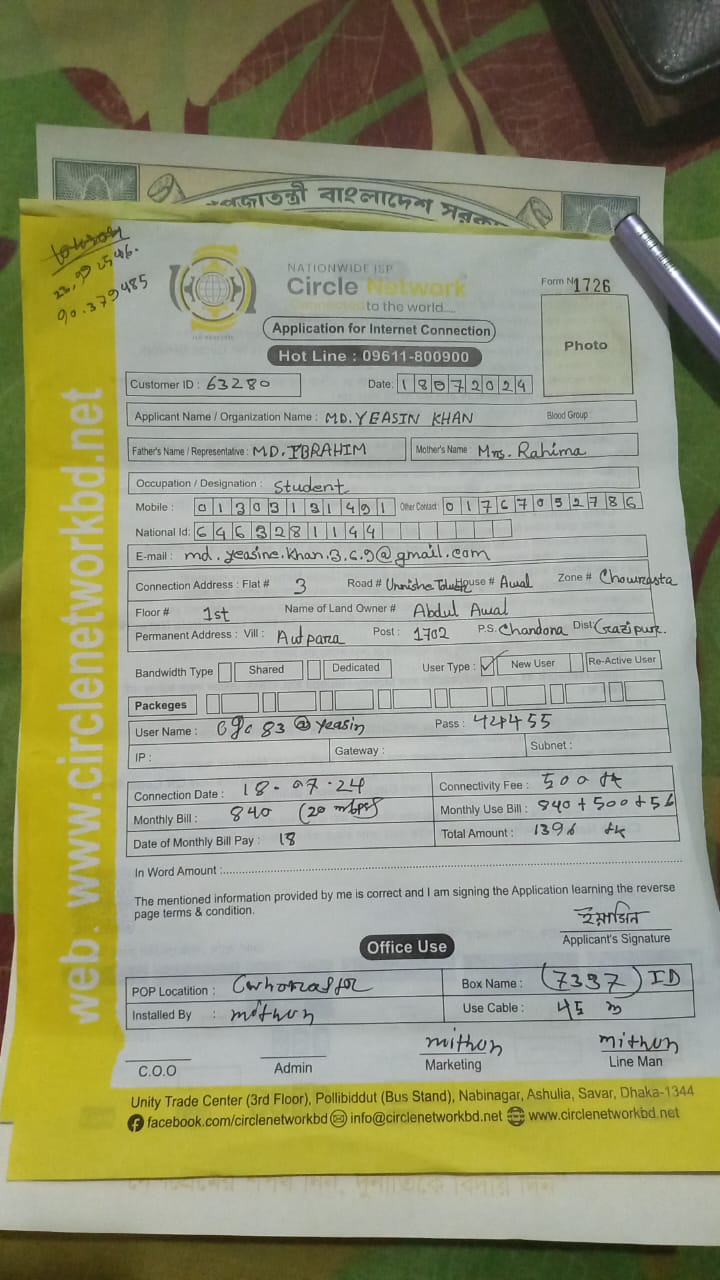 প্রজাতন্ত্রী বাংলাদেশ সরকার
23.992546.
90.379485
NATIONWIDE ISP
Circle Network
Connected to the world.....
Form N 1726
Application for Internet Connection
Photo
Hot Line : 09611-800900
Customer ID : 63280 Date: 18072024
Applicant Name / Organization Name : MD.YEASIN KHAN Blood Group :
Father's Name / Representative : MD.IBRAHIM Mother's Name : Mrs. Rahima
Occupation / Designation : Student
Mobile : 01303131491 Other Contact: 01767052786
National Id: 6463281144
E-mail : md.yeasine.khan.3.6.9@gmail.com
Connection Address : Flat # 3 Road # Unnishe Tower House # Awal Zone # Chowrasta
Floor # 1st Name of Land Owner # Abdul Awal
Permanent Address : Vill : Autpara Post : 1702 P.S. Chandona Dist: Gazipur.
Bandwidth Type Shared Dedicated User Type : ✓ New User Re-Active User
Packeges
User Name : cgc83@yeasin Pass : 424455
IP : Gateway : Subnet :
Connection Date : 18-07-24 Connectivity Fee : 500 tk
Monthly Bill : 840 (20 mbps) Monthly Use Bill : 840+500+56
Date of Monthly Bill Pay : 18 Total Amount : 1396 tk
In Word Amount :
The mentioned information provided by me is correct and I am signing the Application learning the reverse
page terms & condition.
ইয়াসিন
Applicant's Signature
Office Use
POP Locatition : Box Name : (7397) ID
Installed By : mithun Use Cable : 45 m
mithun mithun
C.O.O Admin Marketing Line Man
Unity Trade Center (3rd Floor), Pollibiddut (Bus Stand), Nabinagar, Ashulia, Savar, Dhaka-1344
facebook.com/circlenetworkbd info@circlenetworkbd.net www.circlenetworkbd.net
web. www.circlenetworkbd.net